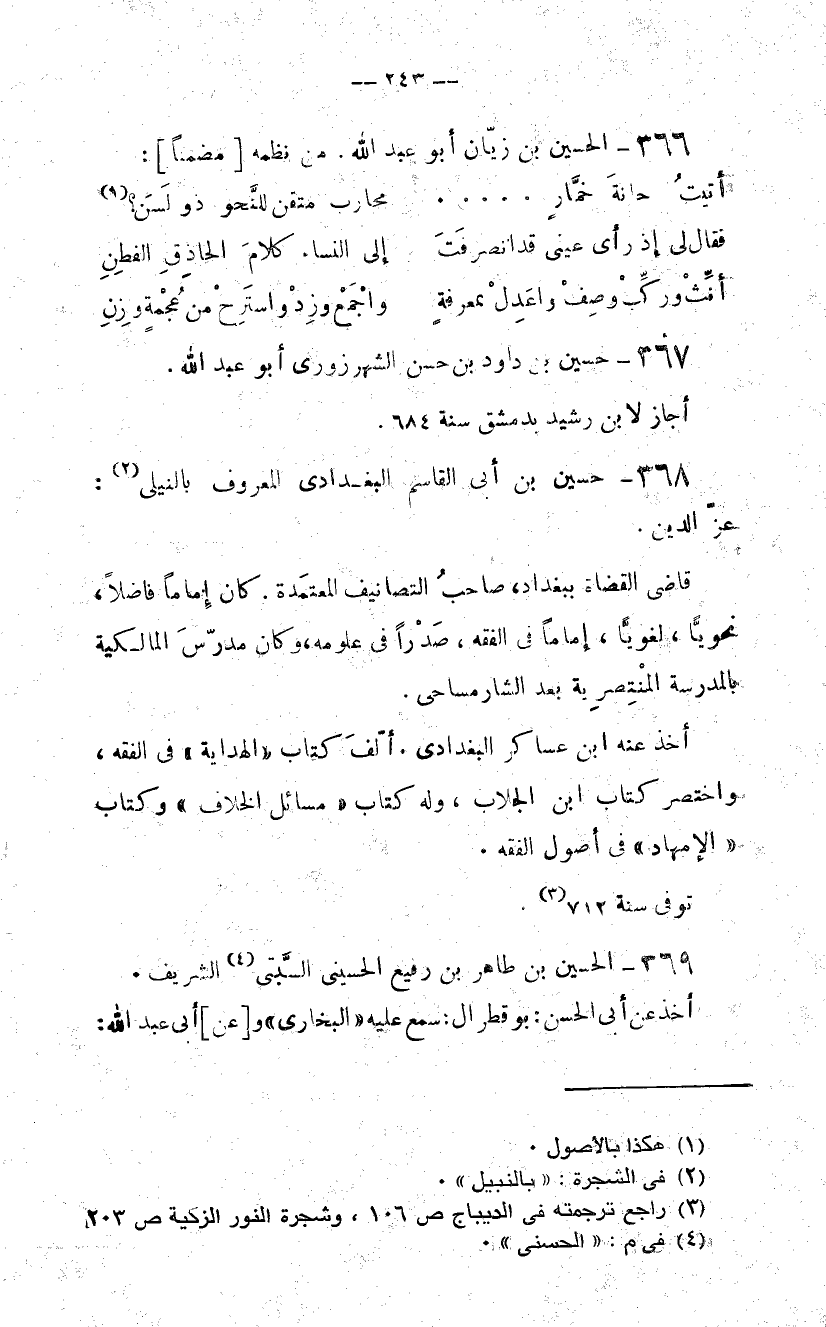 — ٢٤٣ —
٣٦٦ – الحسين بن زيّان أبو عبد الله . من نظمه [ مضمناً ] :
أتيتُ حانةَ خمَّارٍ . . . . . محارب متقن للنَّحو ذو لَسَن؟(٩)
فقال لى إذ رأى عينى قد انصرفَتَ إلى النسا. كلامَ الحاذِقِ الفطِنِ
أنِّثْ وركِّبْ وصِفْ واعَدِلْ بمعرفةٍ واجْمَعْ وزِدْ واسترِحْ من عُجْمْةٍ وزِنِ
٣٦٧ – حسين بن داود بن حسن الشهرزورى أبو عبد الله .
أجاز لابن رشيد بدمشق سنة ٦٨٤ .
٣٦٨ – حسين بن أبى القاسم البغدادى المعروف بالنيلى(٢) :
عزّ الدين .
قاضى القضاة ببغداد، صاحبُ التصانيف المعتمدة . كان إماماً فاضلاً،
نحويًّا ، لغويًّا ، إماماً فى الفقه ، صَدْراً فى علومه، وكان مدرّسَ المالكية
بالمدرسة المنْتِصرِية بعد الشارمساحى .
أخذ عنه ابن عساكر البغدادى . ألّفَ كتاب «الهداية » فى الفقه ،
واختصر كتاب ابن الجلاب ، وله كتاب « مسائل الخلاف » وكتاب
« الإمهاد» فى أصول الفقه .
توفى سنة ٧١٢(٣) .
٣٦٩ – الحسين بن طاهر بن رفيع الحسينى السَّبتى(٤) الشريف .
أخذ عن أبى الحسن : بو قطرال : سمع عليه «البخارى» و[عن] أبى عبد الله:
(١) هكذا بالأصول .
(٢) فى الشجرة : « بالنبيل » .
(٣) راجع ترجمته فى الديباج ص ١٠٦ ، وشجرة النور الزكية ص ٢٠٣
(٤) فى م : « الحسنى » .